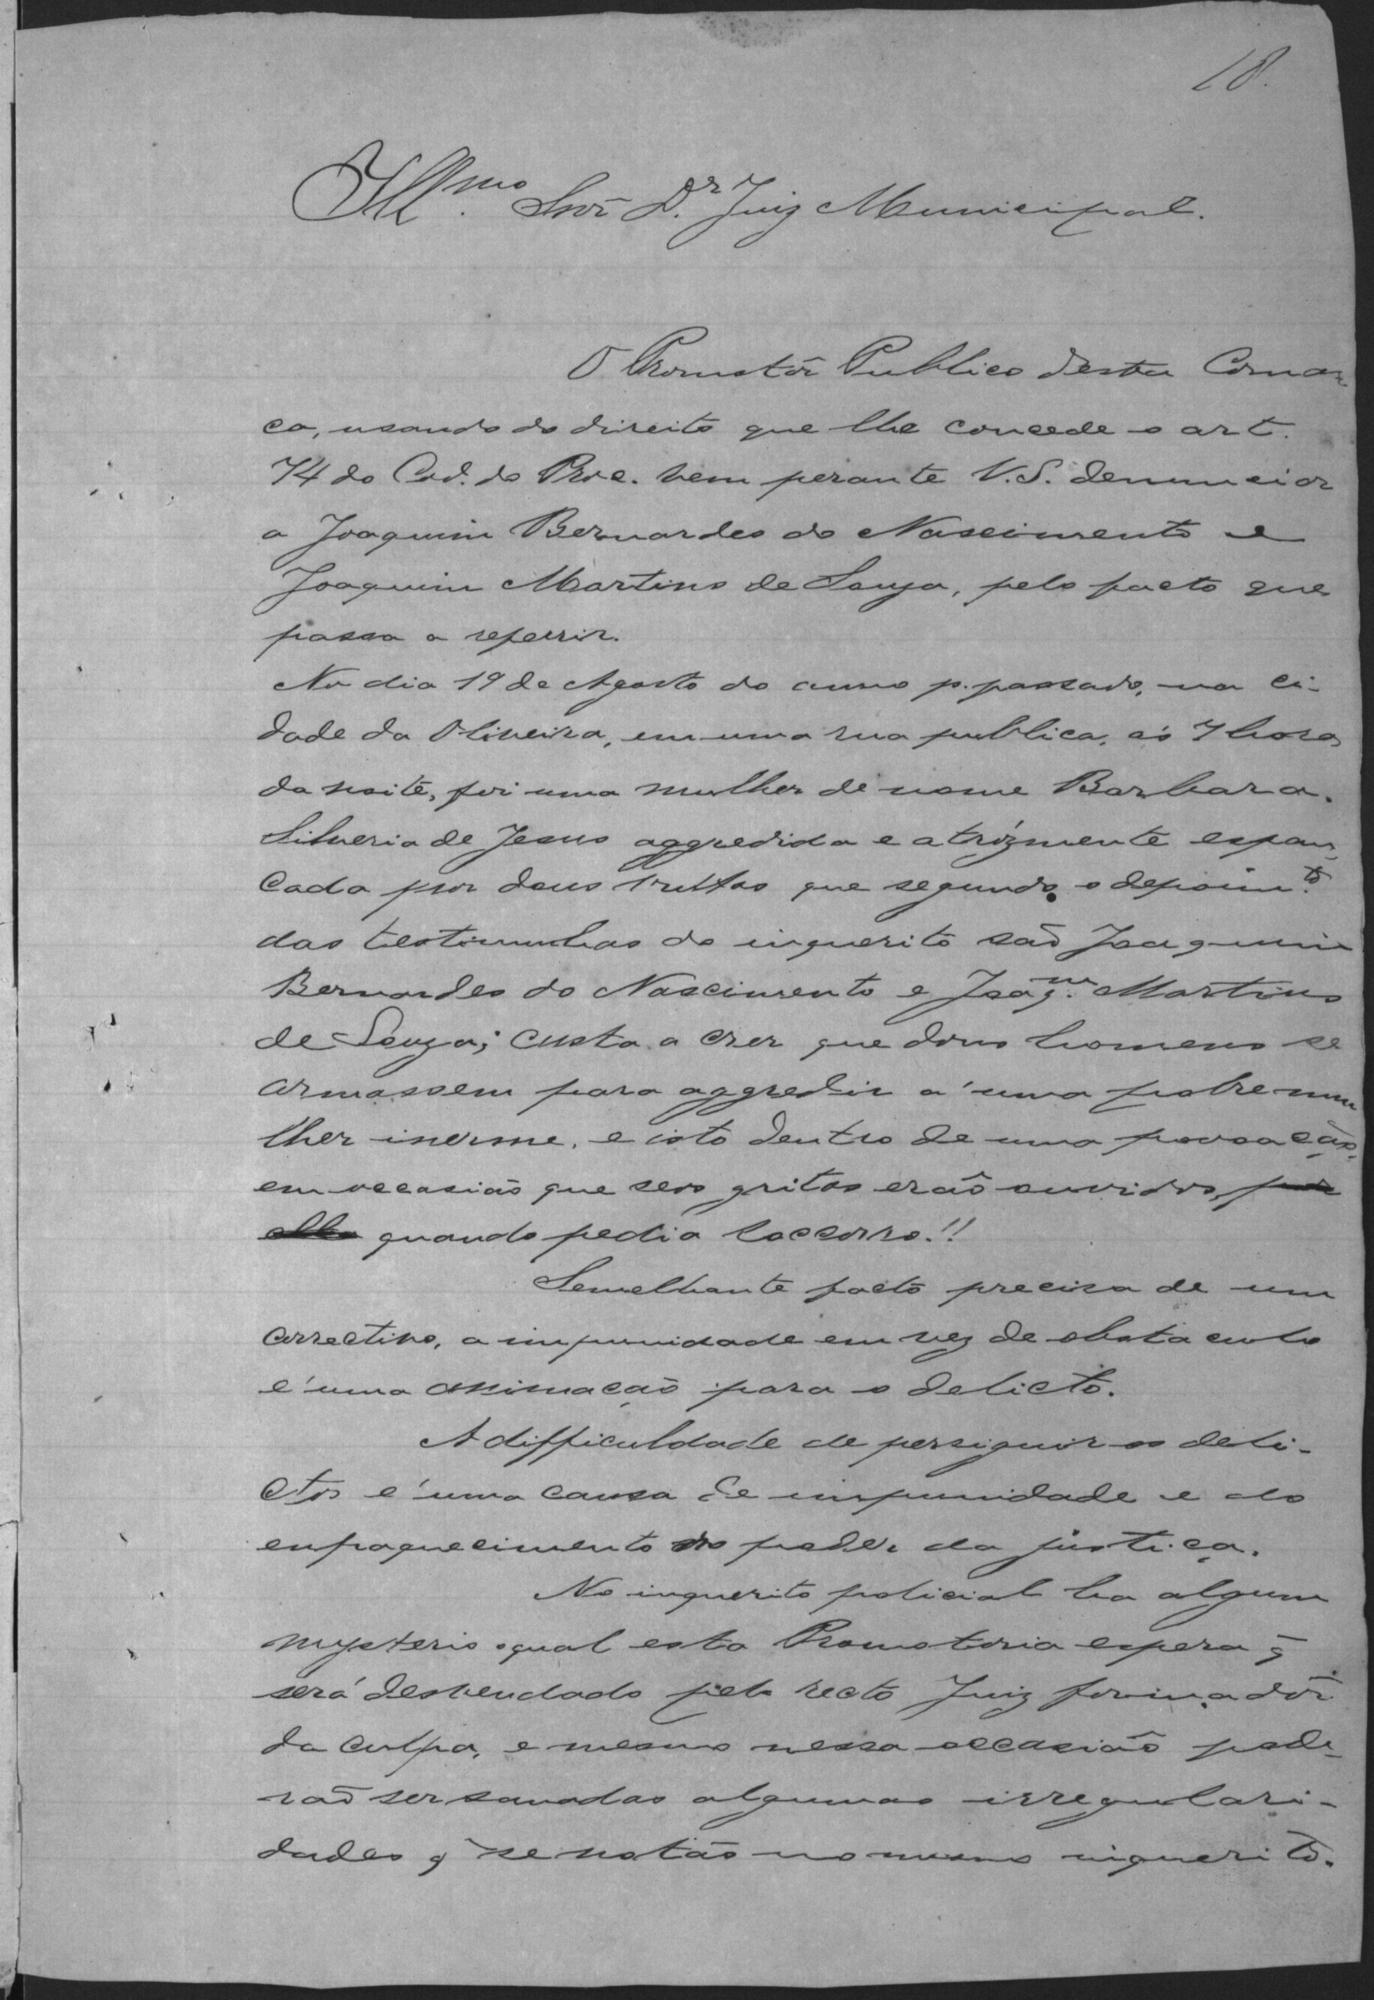 18.
Ill.mo Snr D.r Juiz Municipal.
O Promotôr Publico desta Comar
ca, usando do direito que lhe concede o art.
74 do Cod. do Proc. vem perante V. S. denunciar
a Joaquim Bernardes do Nascimento e
Joaquim Martins de Souza, pelo facto que
passa a referrir.
No dia 19 de Agosto do anno p. passado, na ci-
dade da Oliveira, em uma rua publica, ás 7 horas
da noite, foi uma mulher de nome Barbara
Silveria de Jesus aggredida e atrózmente espan-
cada por dous vultos que segundo o depoim.to
das testimunhas do inquerito são Joaquim
Bernardes do Nascimento e Joaq.m Martins
de Souza; custa a crer que dous homens se
armassem para aggredir a uma pobre mu
lher inerme, e isto dentro de uma povoação,
em occasião que seos gritos erão ouvidos, por
ella quando pedia soccorro!!
Semelhante facto precisa de um
correctivo, a impunidade em vez de obstaculo
é uma animação para o delicto.
A difficuldade de perseguir os deli-
ctos é uma causa de impunidade e do
enfraquecimento do poder da justiça.
No inquerito policial ha algum
mysterio o qual esta Promotoria espera q̃
será desvendado pelo recto Juiz formadôr
da culpa, e mesmo nessa occasião pode-
rão ser sanadas algumas irregulari-
dades q̃ se notão no mesmo inquerito.